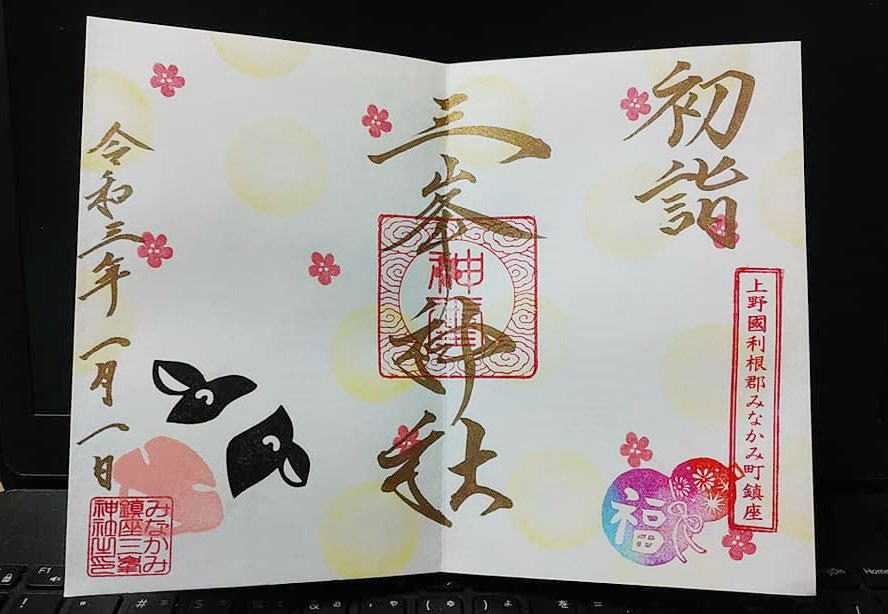 初詣
上野國利根郡みなかみ町鎮座
福
三峯神社
神璽
令和三年一月一日
みなかみ
鎮座三峯
神社之印
F1
Home